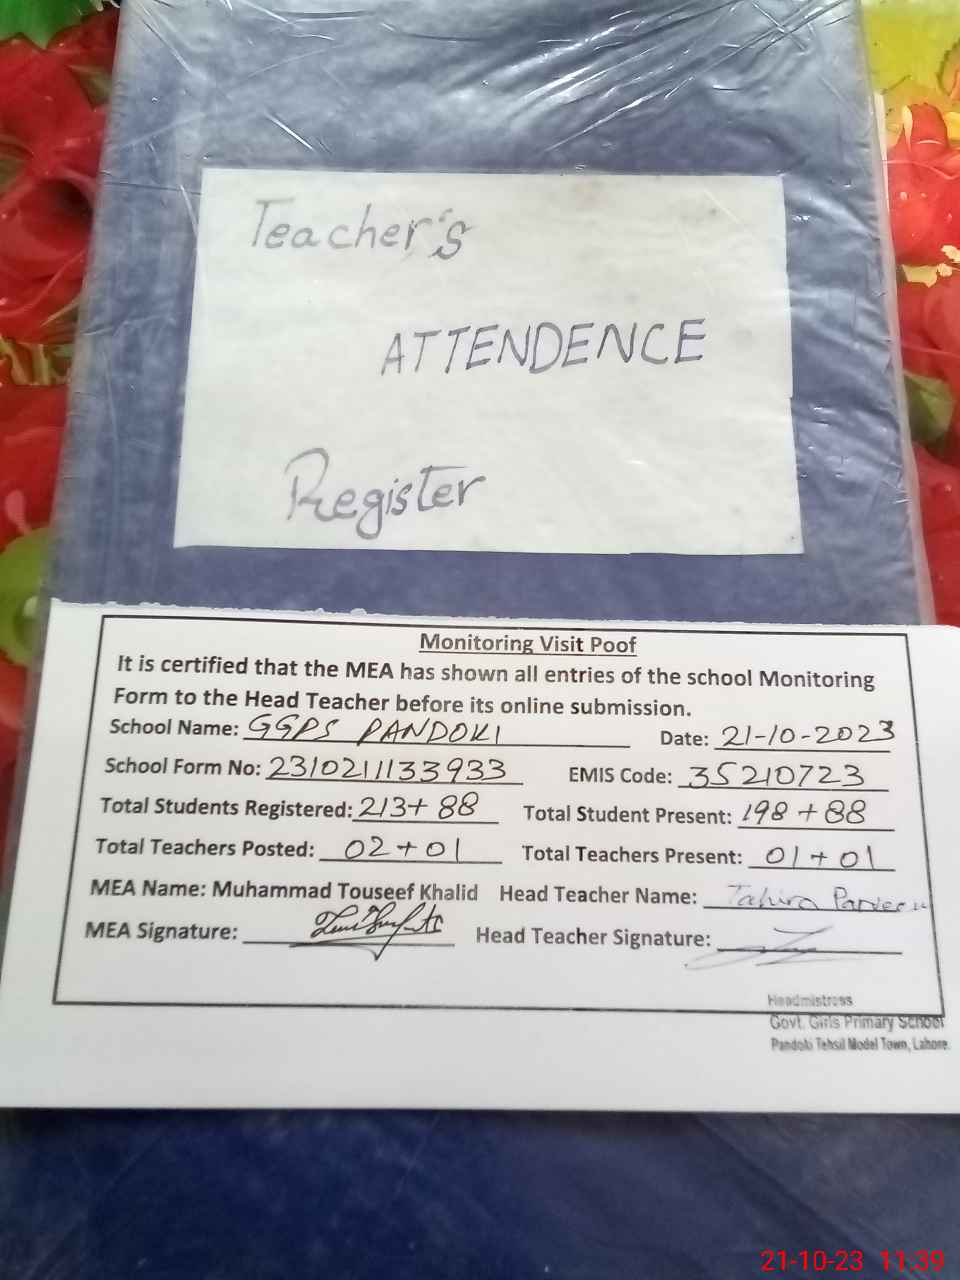 Teacher's
ATTENDENCE
Register
Monitoring Visit Poof
It is certified that the MEA has shown all entries of the school Monitoring
Form to the Head Teacher before its online submission.
School Name: GGPS PANDOKI Date: 21-10-2023
School Form No: 2310211133933 EMIS Code: 35210723
Total Students Registered: 213+ 88 Total Student Present: 198 + 88
Total Teachers Posted: 02 + 01 Total Teachers Present: 01 + 01
MEA Name: Muhammad Touseef Khalid Head Teacher Name: Tahira Parveen
MEA Signature: Head Teacher Signature:
Headmistress
Govt. Girls Primary School
Pandoki Tehsil Model Town, Lahore.
21-10-23 11:39